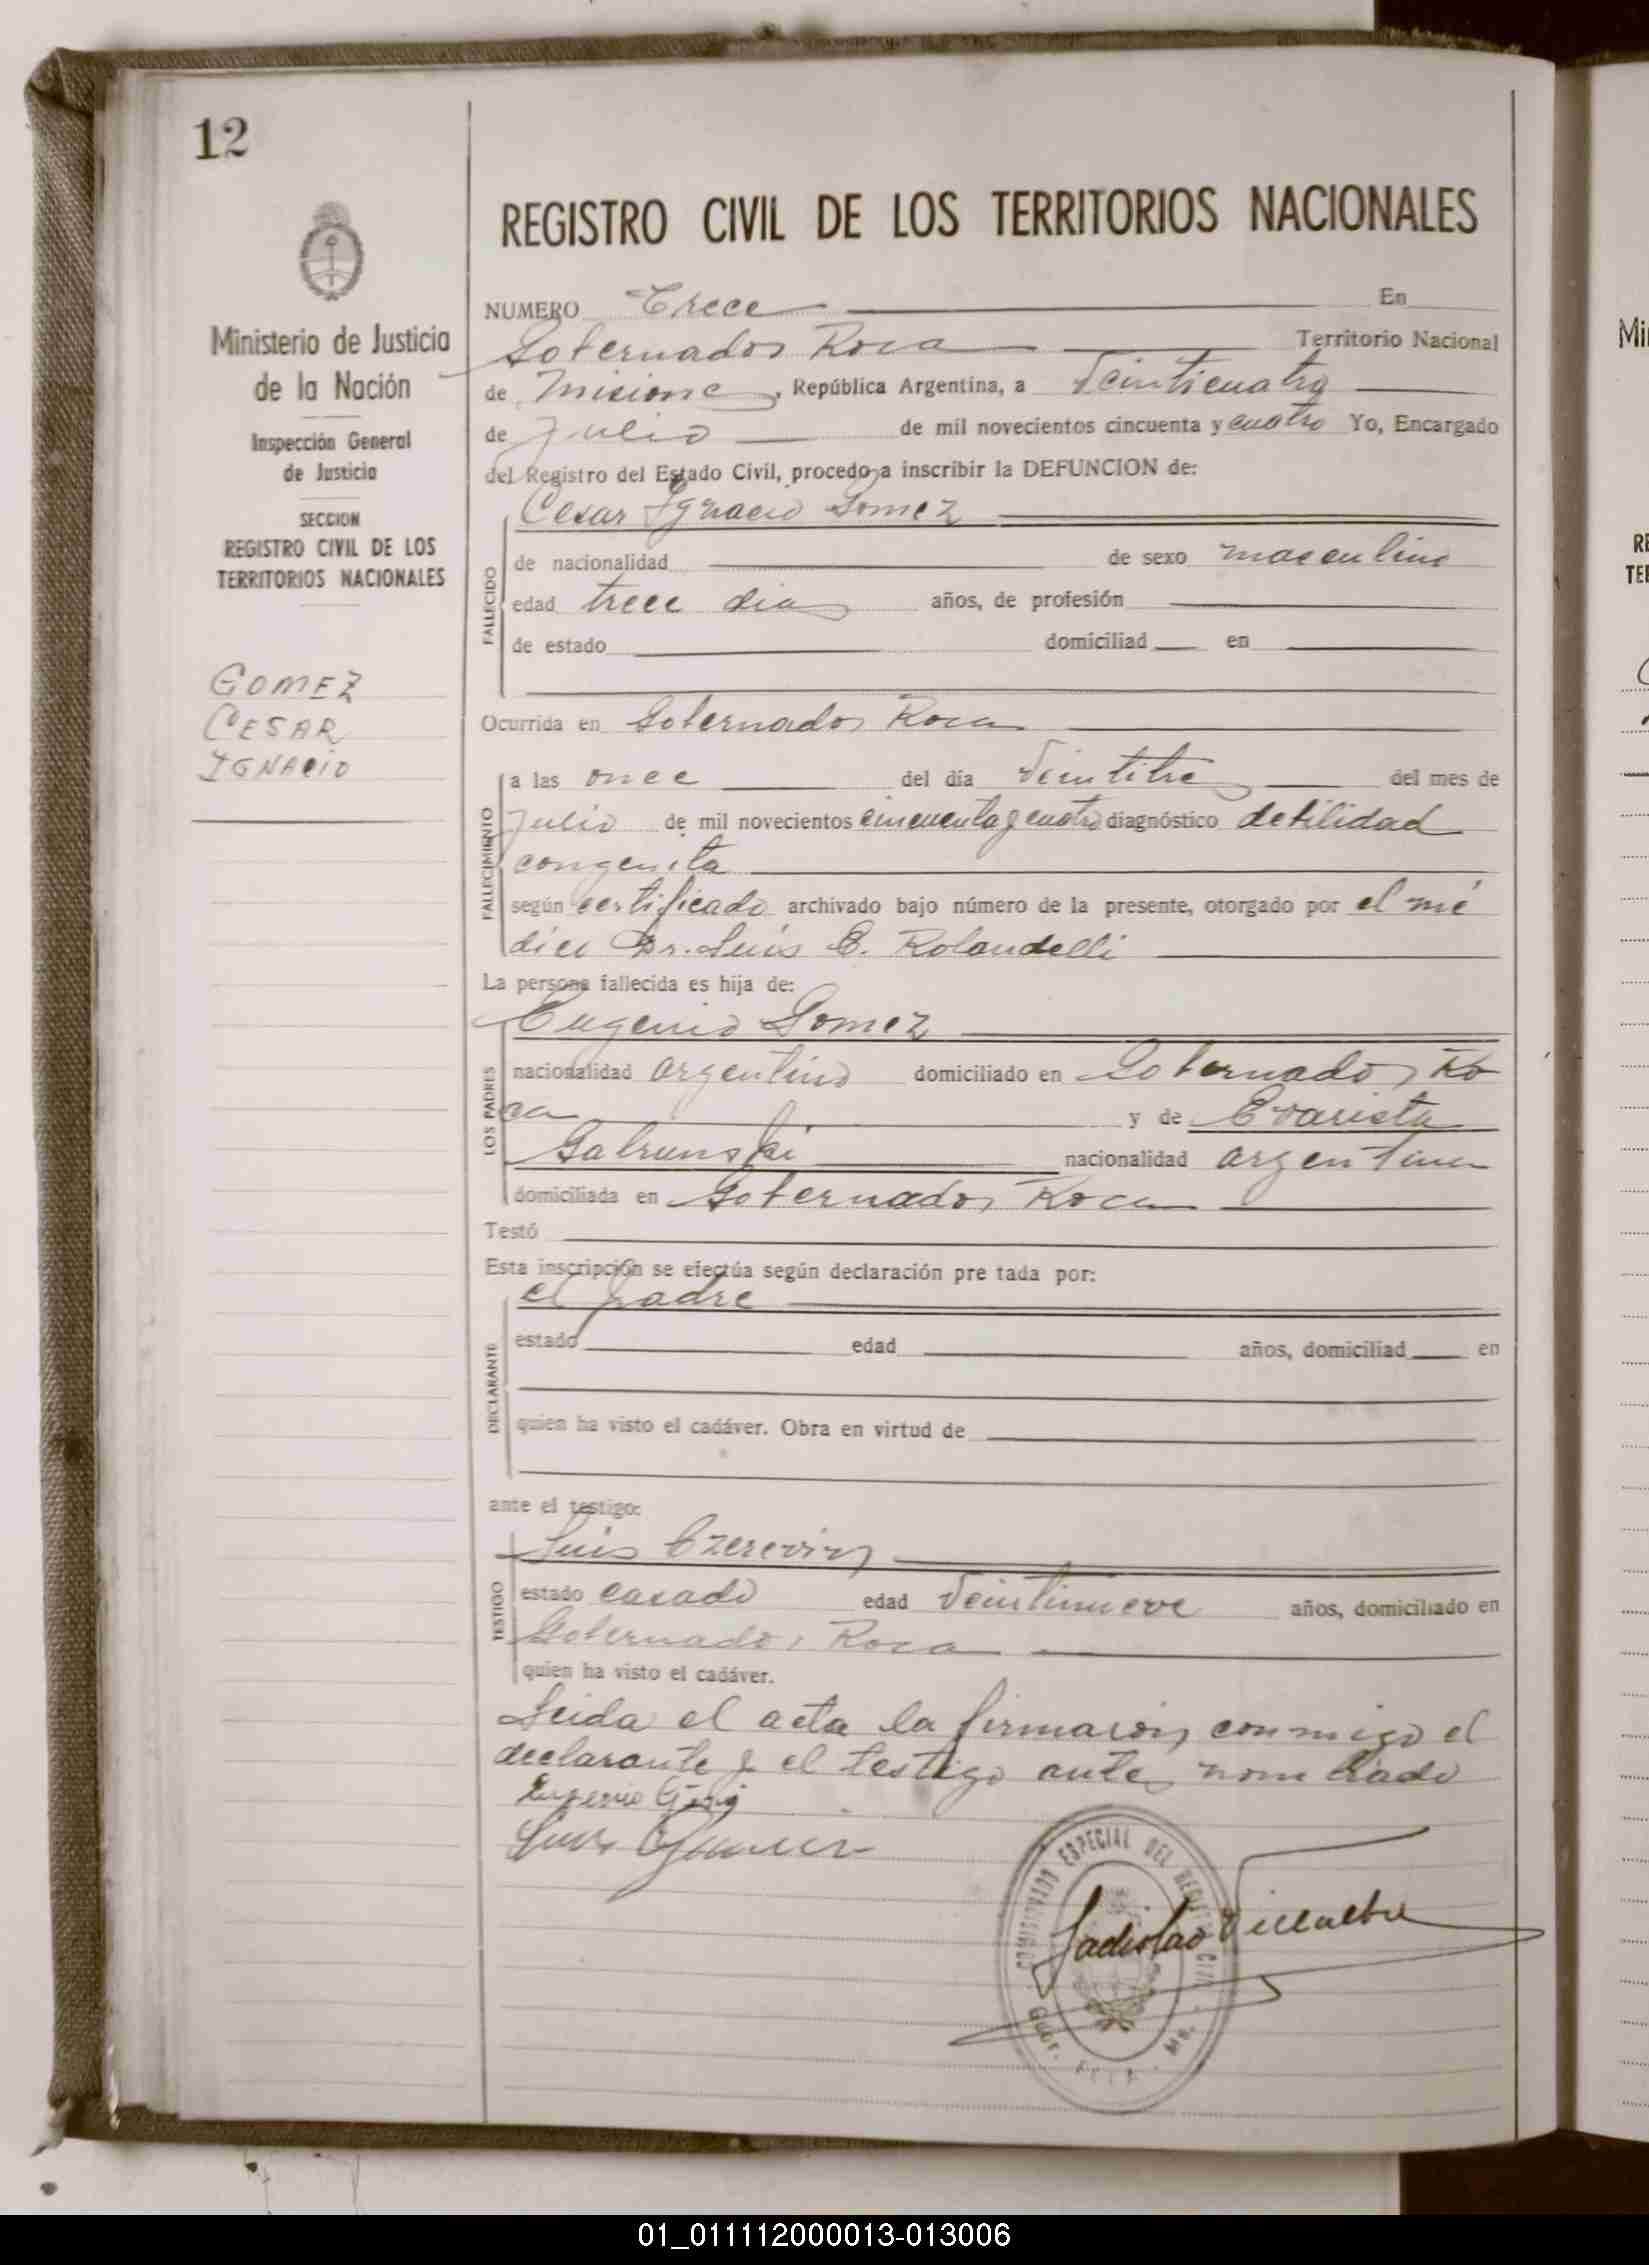 12
REGISTRO CIVIL DE LOS TERRITORIOS NACIONALES
Ministerio de Justicia
de la Nación
Inspección General
de Justicia
SECCION
REGISTRO CIVIL DE LOS
TERRITORIOS NACIONALES
GOMEZ
CESAR
IGNACIO
NUMERO Trece En
Gobernador Roca Territorio Nacional
de Misiones, República Argentina, a Veinticuatro
de Julio de mil novecientos cincuenta y cuatro Yo, Encargado
del Registro del Estado Civil, procedo a inscribir la DEFUNCION de:
Cesar Ignacio Gomez
FALLECIDO
de nacionalidad de sexo masculino
edad trece dias años, de profesión
de estado domiciliad en
Ocurrida en Gobernador Roca
FALLECIMIENTO
a las once del día Veintitres del mes de
Julio de mil novecientos cincuenta y cuatro diagnóstico debilidad
congenita
según certificado archivado bajo número de la presente, otorgado por el mé
dico Dr. Luis E. Rolandelli
La persona fallecida es hija de:
LOS PADRES
Eugenio Gomez
nacionalidad argentino domiciliado en Gobernador Ro
ca y de Evarista
nacionalidad argentina
domiciliada en Gobernador Roca
Testó
Esta inscripción se efectúa según declaración pre tada por:
DECLARANTE
el padre
estado edad años, domiciliad en
quien ha visto el cadáver. Obra en virtud de
ante el testigo:
TESTIGO
Luis
estado casado edad Veintinueve años, domiciliado en
Gobernador Roca
quien ha visto el cadáver.
Leida el acta la firmaron conmigo el
declarante y el testigo antes nombrado
Eugenio
COMISIONADO ESPECIAL DEL REGISTRO CIVIL
Ladislao Villalba
01_011112000013-013006